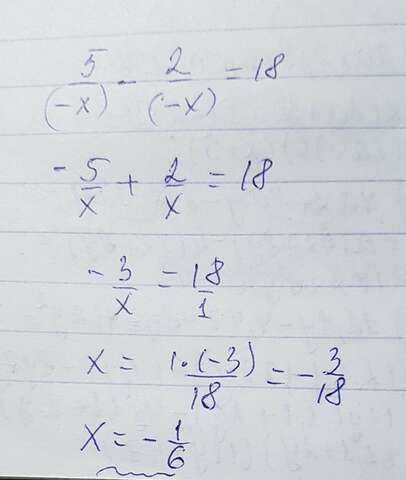 5/(-x) - 2/(-x) = 18
- 5/x + 2/x = 18
- 3/x = 18/1
x = 1·(-3)/18 = - 3/18
x = - 1/6